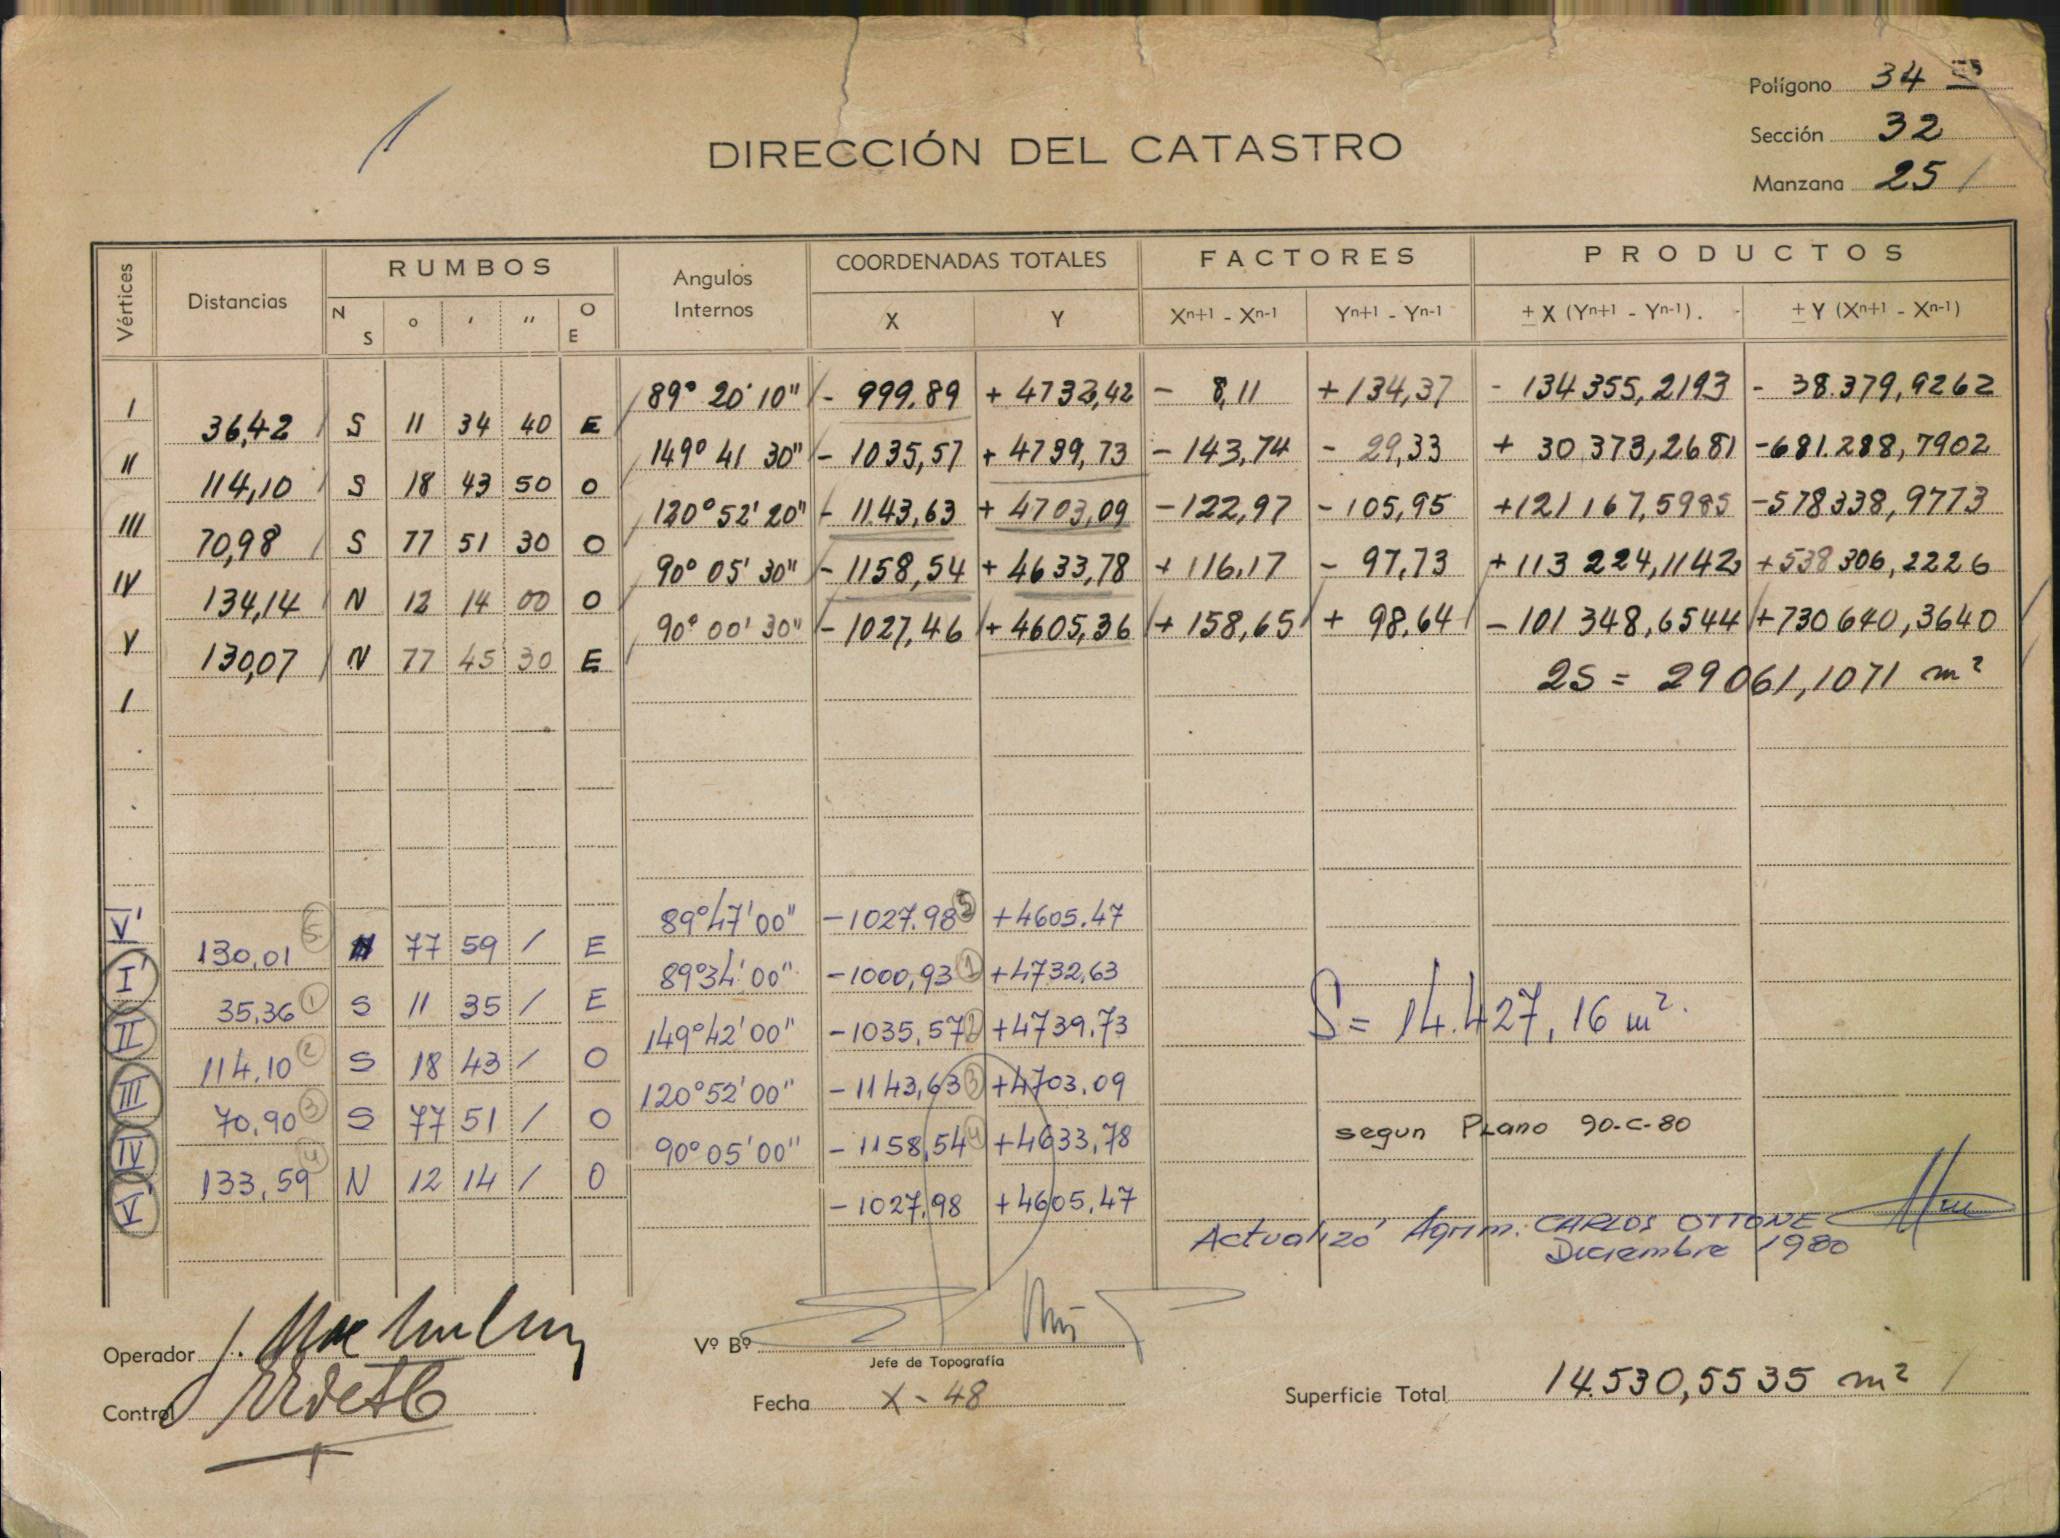 Polígono 34
Sección 32
Manzana 25
DIRECCIÓN DEL CATASTRO
Vértices Distancias RUMBOS Angulos Internos COORDENADAS TOTALES FACTORES PRODUCTOS
N S ° ' " O E X Y Xn+1 - Xn-1 Yn+1 - Yn-1 ± X (Yn+1 - Yn-1). ± Y (Xn+1 - Xn-1)
I 89° 20' 10" - 999.89 + 4732,42 - 8,11 + 134,37 - 134 355,2193 - 38.379,9262
36,42 S 11 34 40 E
II 149° 41 30" - 1035,57 + 4739,73 - 143,74 - 29,33 + 30 373,2681 - 681.288,7902
114,10 S 18 43 50 O
III 120° 52' 20" - 1143,63 + 4703,09 - 122,97 - 105,95 + 121 167,5985 - 578 338,9773
70,98 S 77 51 30 O
IV 90° 05' 30" - 1158,54 + 4633,78 + 116,17 - 97,73 + 113 224,1142 + 538 306,2226
134,14 N 12 14 00 O
V 90° 00' 30" - 1027,46 + 4605,36 + 158,65 + 98,64 - 101 348,6544 + 730 640,3640
130,07 N 77 45 30 E
I 2S = 29061,1071 m²
V' 89°47'00" - 1027.98 5 + 4605.47
130,01 5 N 77 59 / E
I' 89°34'00" - 1000,93 1 + 4732,63
35,36 1 S 11 35 / E
II 149°42'00" - 1035,57 2 + 4739,73
S = 14.427,16 m².
114,10 2 S 18 43 / O
III 120°52'00" - 1143,63 3 + 4703.09
70,90 3 S 77 51 / O
segun Plano 90-C-80
IV 90°05'00" - 1158,54 4 + 4633,78
133,59 4 N 12 14 / O
V' - 1027,98 + 4605,47
Actualizó Agrim: CARLOS OTTONE
Diciembre 1980
Operador
Vº Bº
Jefe de Topografía
Control
Fecha X - 48
Superficie Total 14.530,5535 m²